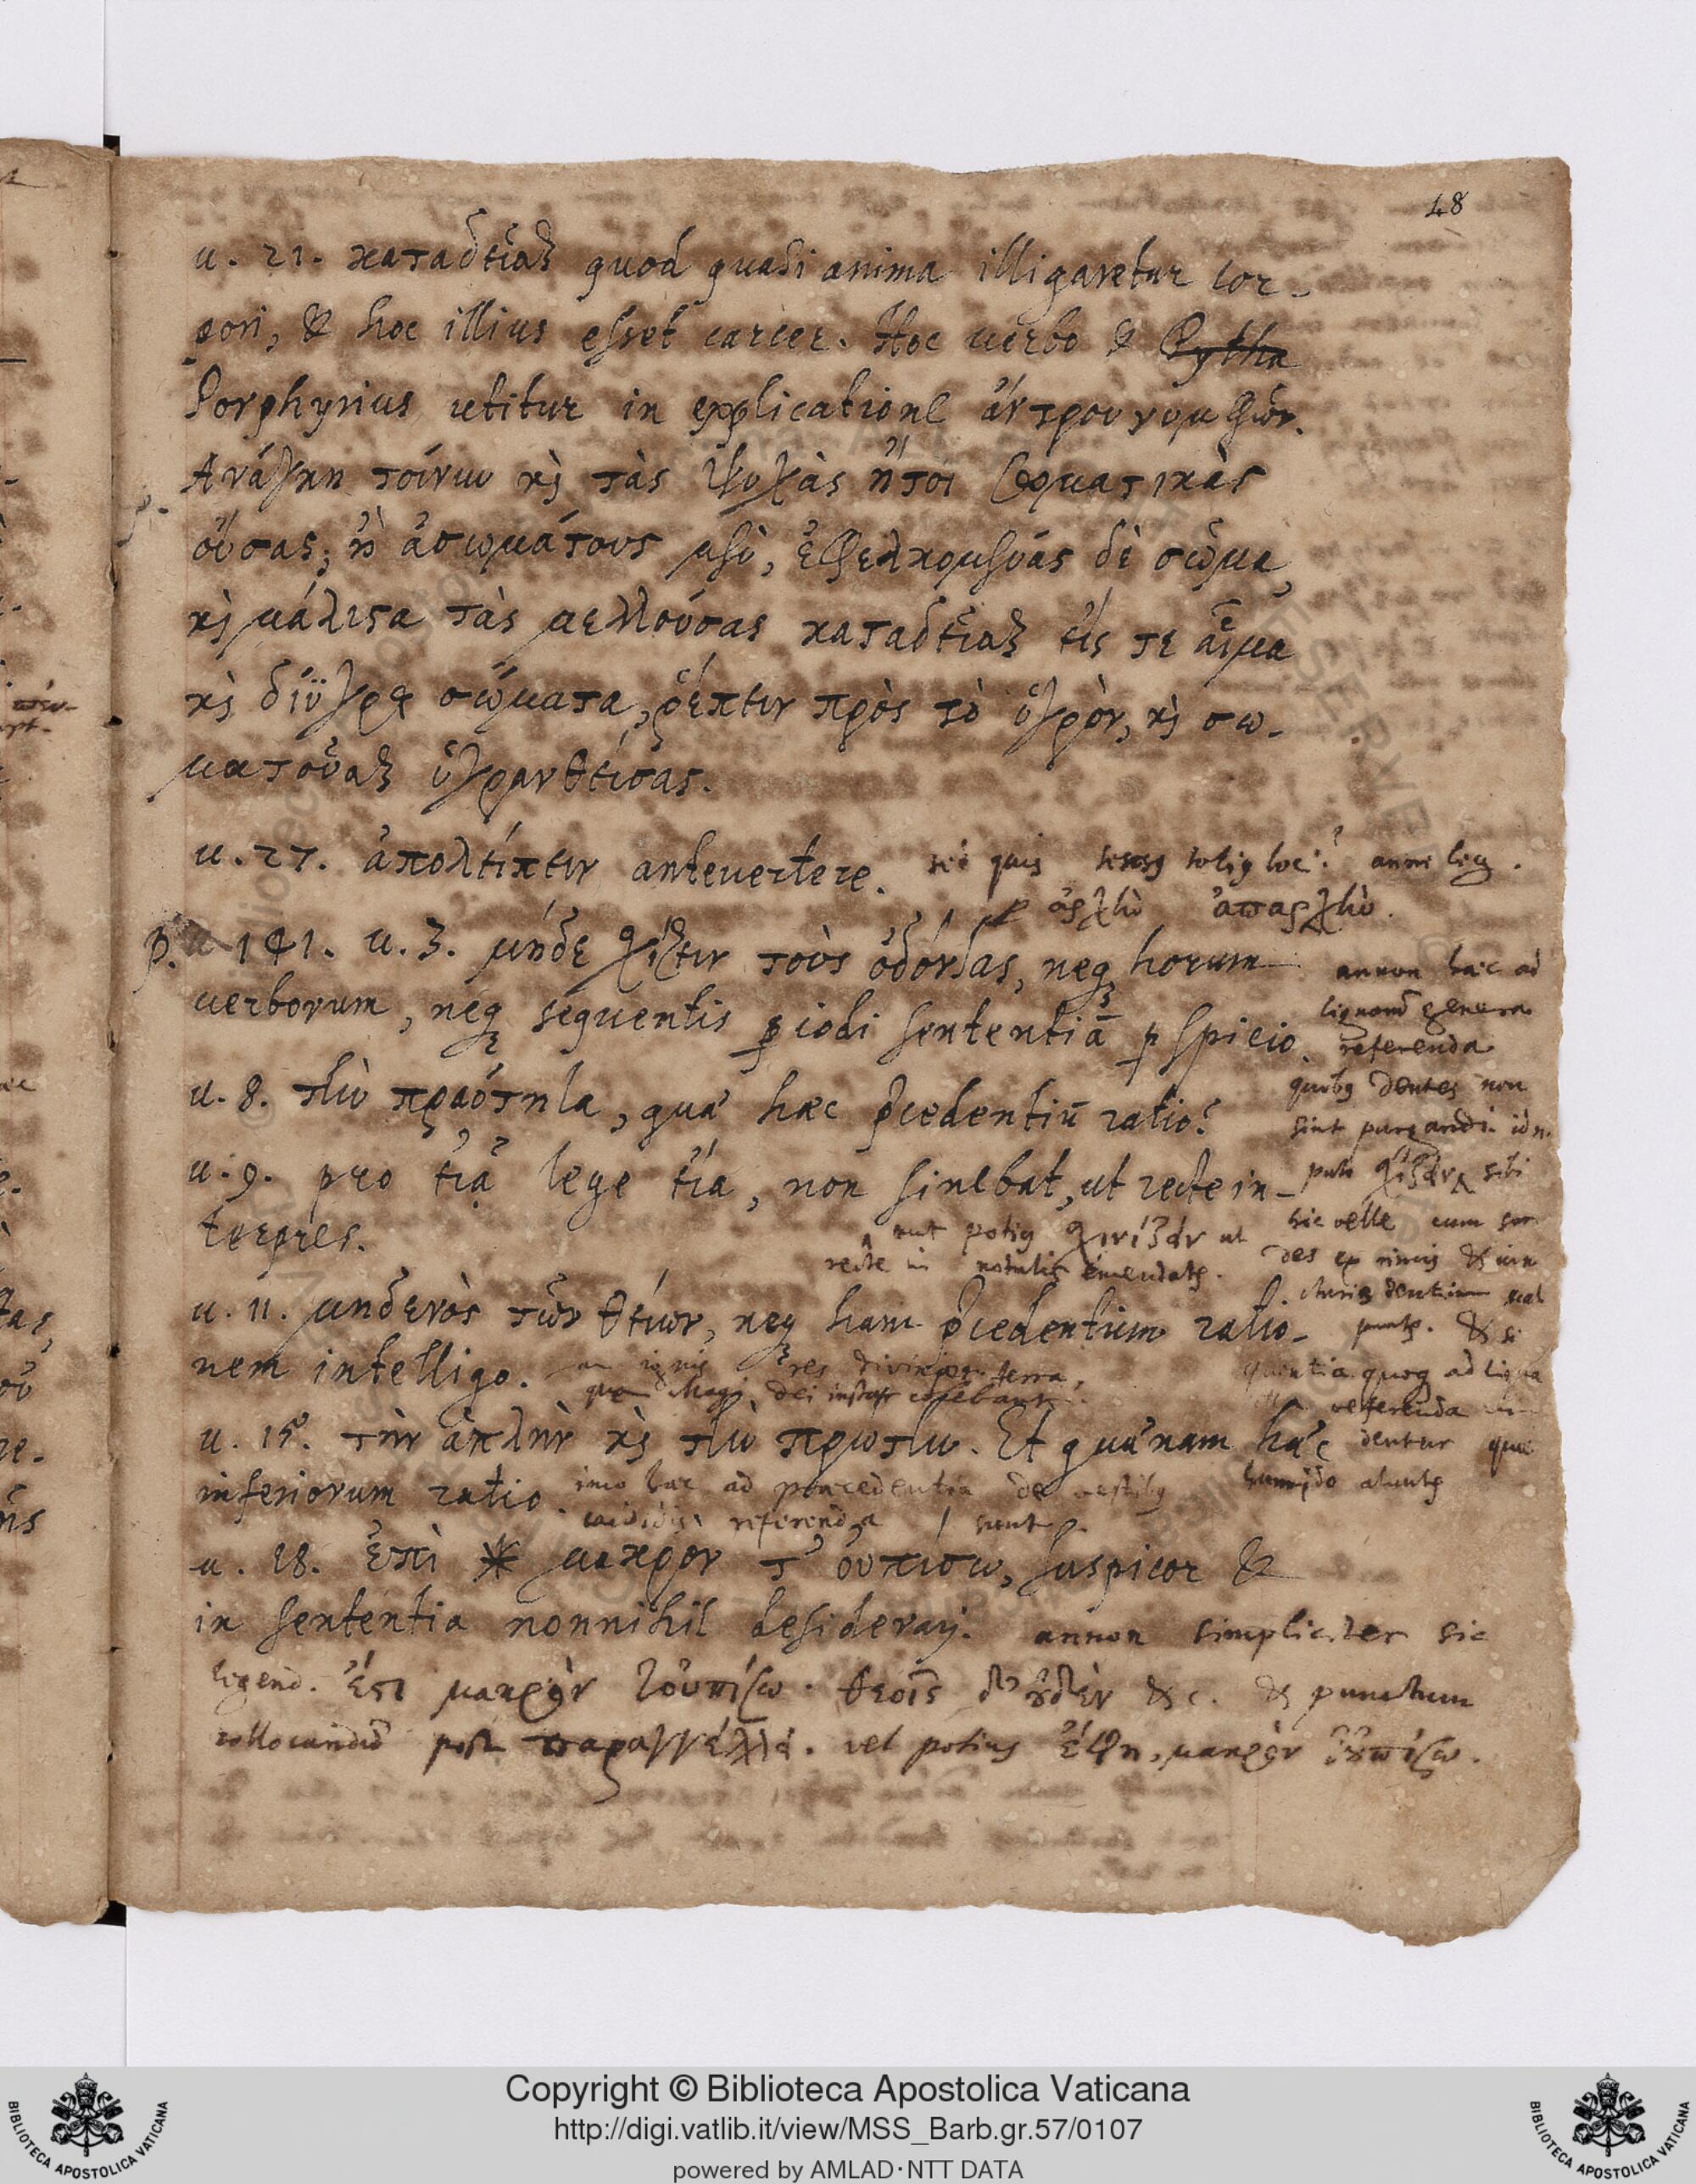 48
u. 21. καταδεῖσθαι quod quasi anima illigaretur cor-
pori, & hoc illius esset carcer. Hoc uerbo & Pytha
Porphyrius utitur in explicatione ἄντρου νυμφῶν.
Ἀνάγκη τοίνυν καὶ τὰς ψυχὰς ἤτοι σωματικὰς
οὔσας, ἢ ἀσωμάτους μὲν, ἐφελκομένας δὲ σῶμα,
καὶ μάλιστα τὰς μελλούσας καταδεῖσθαι εἴς τε αἷμα
καὶ δίϋγρα σώματα, ῥέπειν πρὸς τὸ ὑγρὸν, καὶ σω-
ματοῦσθαι ὑγρανθείσας.
u. 27. ἀπολείπειν anteuertere. quis loci? anne leg.
p ἀρχὴν ἀπαρχὴν.
p. 141. u. 3. μήδε χίζειν τοὺς ὀδόντας, neq horum
uerborum, neq sequentis piodi sententiā pspicio.
annon haec ad
lignorū genera
referenda
quibg dentes non
sint purgandi. idn.
puto σχίζειν sibi
hic velle cum sor
des ex rimis & iun
cturis dentium
. & si
quentia quoq ad ligna
referenda
dentur quae
humido aluntg
u. 8. τὴν πραότητα, quae haec pcedentiū ratio?
u. 9. pro εἴα lege εἴα, non sinebat, ut recte in-
terpres.
aut potig σχινίζειν ut
recte in notulis emendatg.
u. 11. μηδενὸς τῶν θείων, neq hanc pcedentium ratio-
nem intelligo. an ignis res divini terra,
quam Magi dei instar colebant?
u. 15. τὴν ἁπλὴν καὶ τὴν πρώτην. Et quaenam haec
inferiorum ratio. imo haec ad praecedentia de vestibg
candidis referenda sunt.
u. 18. ἐπὶ * μακρον τ' οὐπισω, suspicor &
in sententia nonnihil desiderari. annon simpliciter sic
legend. ἔστι μακρὸν τοὐπίσω. θεοῖς δ' οὐδὲν &c. & punctum
collocandū post παραγγέλλει. vel potius ἔφη, μακρὸν τοὐπίσω.
Copyright © Biblioteca Apostolica Vaticana
http://digi.vatlib.it/view/MSS_Barb.gr.57/0107
powered by AMLAD·NTT DATA
BIBLIOTECA APOSTOLICA VATICANA
BIBLIOTECA APOSTOLICA VATICANA